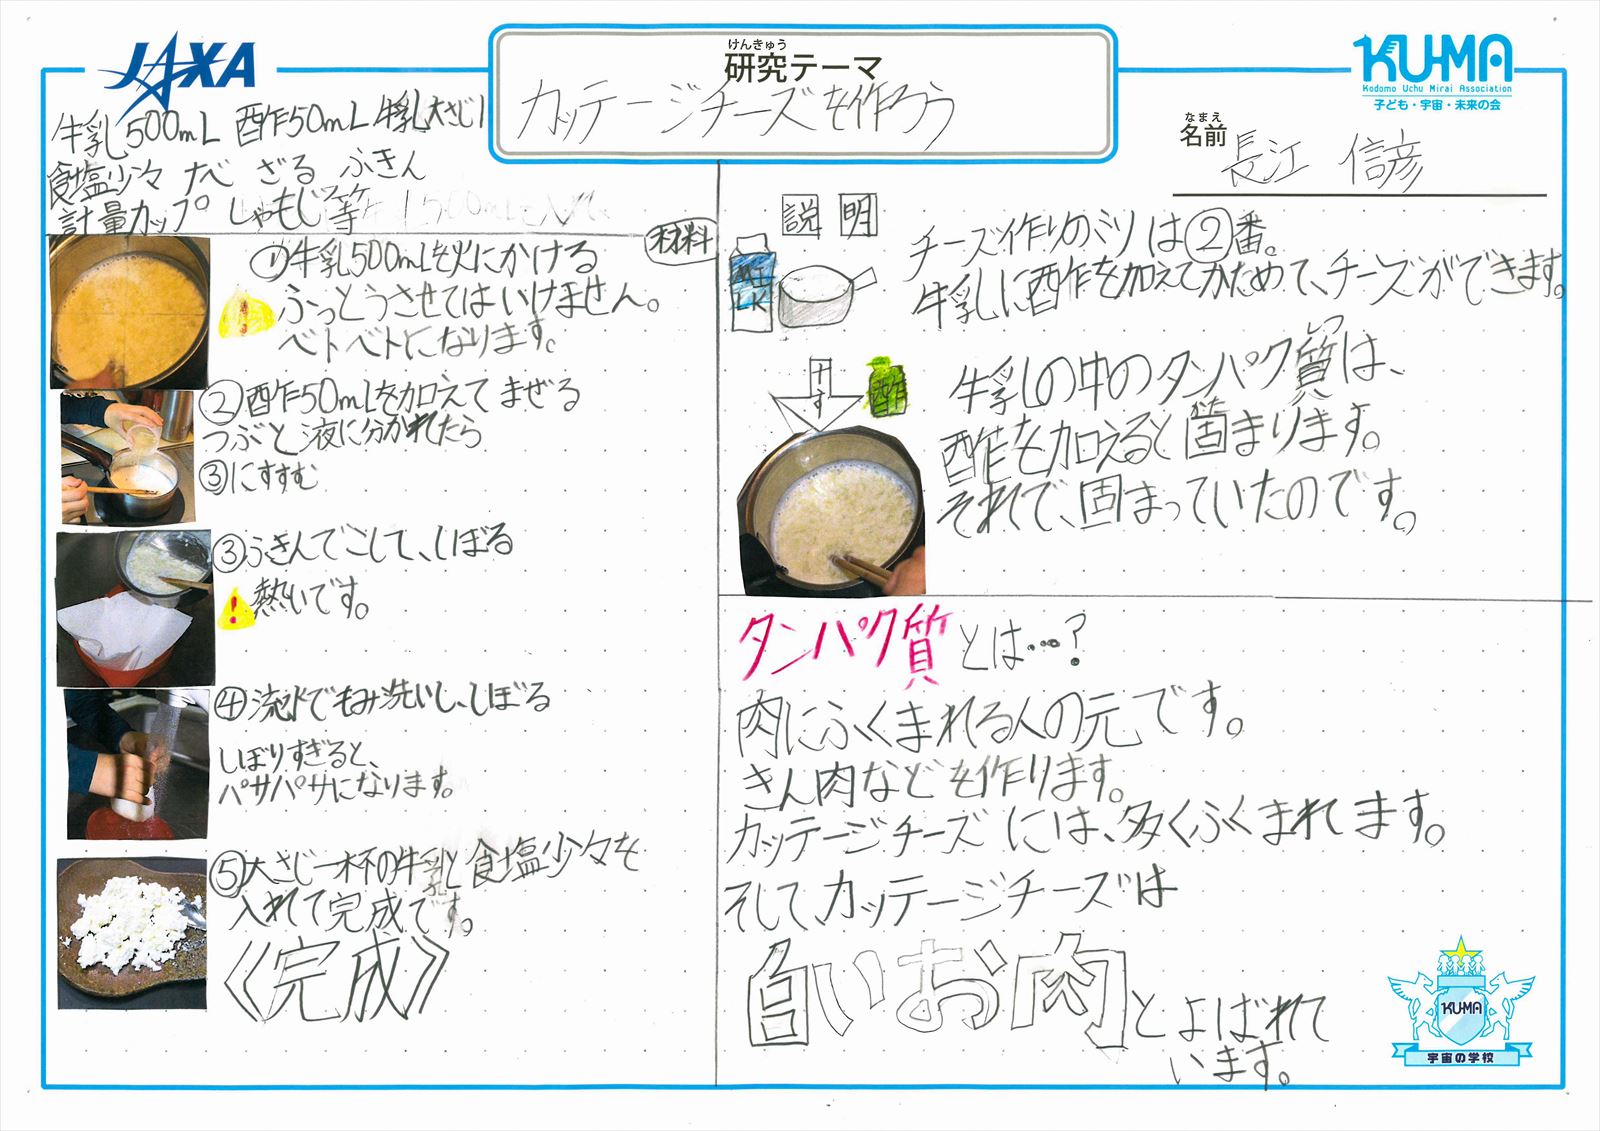 JAXA
けんきゅう
研究テーマ
カッテージチーズを作ろう
KU-MA
Kodomo Uchu Mirai Association
子ども・宇宙・未来の会
なまえ
名前
長江 信彦
牛乳500mL 酢50mL 牛乳大さじ1
食塩少々 なべ ざる ふきん
計量カップ しゃもじ等
材料
①牛乳500mLを火にかける
!
ふっとうさせてはいけません。
ベトベトになります。
②酢50mLを加えてまぜる
つぶと液に分かれたら
③にすすむ
③ふきんでこして、しぼる
!
熱いです。
④流水でもみ洗いし、しぼる
しぼりすぎると、
パサパサになります。
⑤大さじ一杯の牛乳と食塩少々を
入れて完成です。
《完成》
説明
MILK
チーズ作りのミソは②番。
牛乳に酢を加えてかためて、チーズができます。
たす
酢
牛乳の中のタンパク質は、
しつ
酢を加えると固まります。
それで、固まっていたのです。
タンパク質とは…?
肉にふくまれる人の元です。
きん肉などを作ります。
カッテージチーズには、多くふくまれてます。
そしてカッテージチーズは
白いお肉とよばれて
います。
KU-MA
宇宙の学校